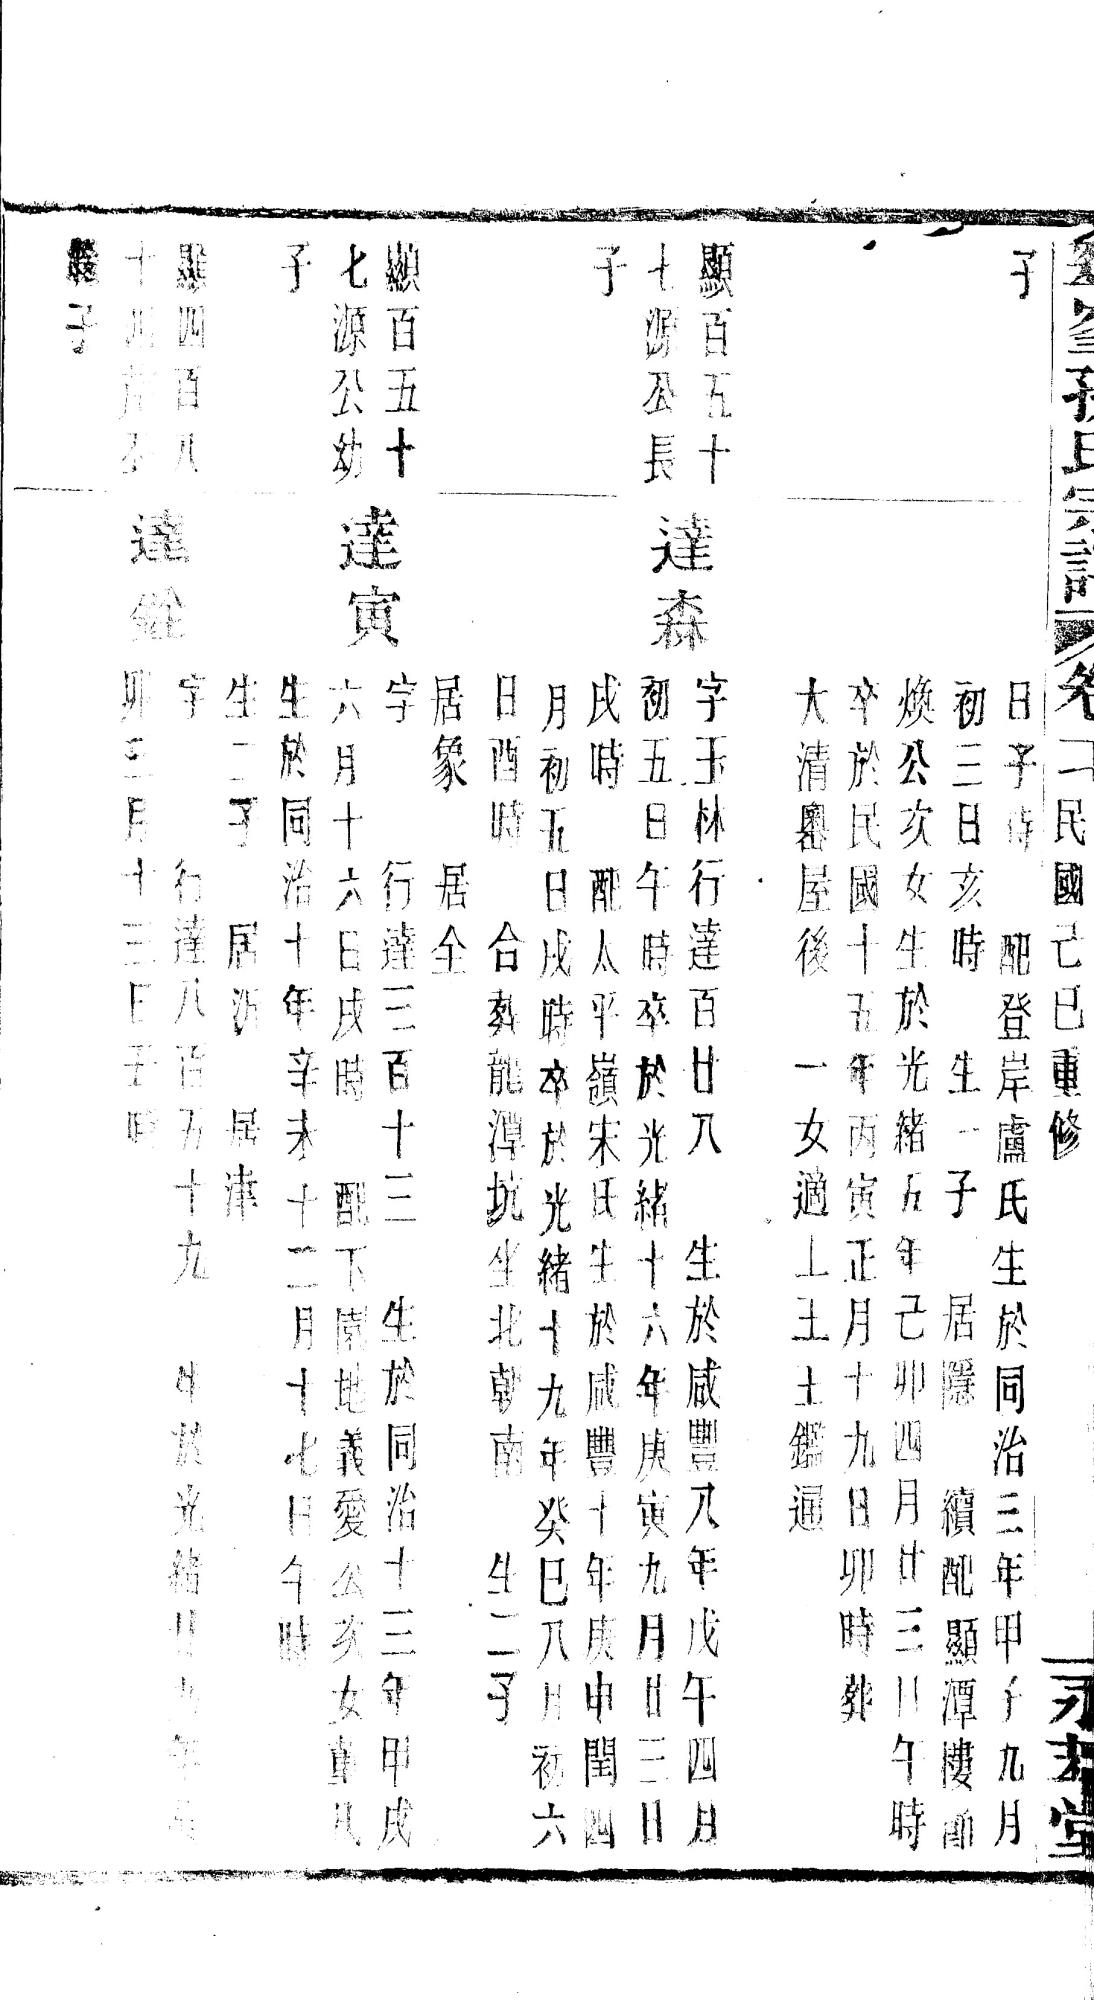 孫氏宗譜
卷
民國己巳重修
堂
子
日子時 配登岸盧氏生於同治三年甲子九月
初三日亥時 生一子 居隱 續配顯潭樓
煥公次女生於光緒五年己卯四月廿三日午時
卒於民國十五年丙寅正月十九日卯時葬
大清嶴屋後 一女適上王土鑑通
顯百五十
七源公長
子
達森
字玉林行達百廿八 生於咸豐八年戊午四月
初五日午時卒於光緒十六年庚寅九月廿三日
戌時 配太平嶺宋氏生於咸豐十年庚申閏四
月初五日戌時卒於光緒十九年癸巳八月初六
日酉時 合葬龍潭坑坐北朝南 生二子
居象 居全
顯百五十
七源公幼
子
達寅
字 行達三百十三 生於同治十三年甲戌
六月十六日戌時 配下園地義愛公次女章氏
生於同治十年辛未十二月十七日午時
生二子 居沂 居津
顯四百八
十四 公
子
達銓
字 行達八百五十九 生於光緒廿九年癸
卯三月十三日子時